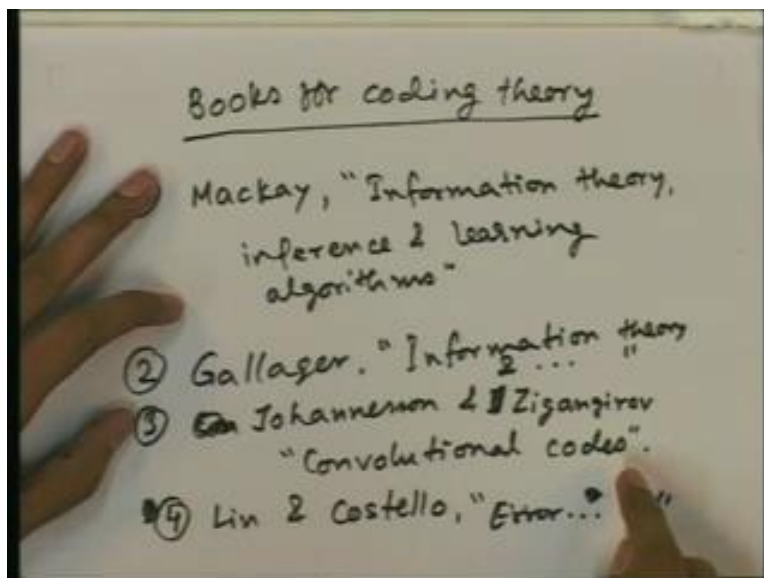 Books for coding theory
Mackay, "Information theory,
inference & learning
algorithms"
② Gallager. "Information theory
& ... "
③ Johannesson & Zigangirov
"Convolutional codes".
④ Lin & Costello, "Error... "